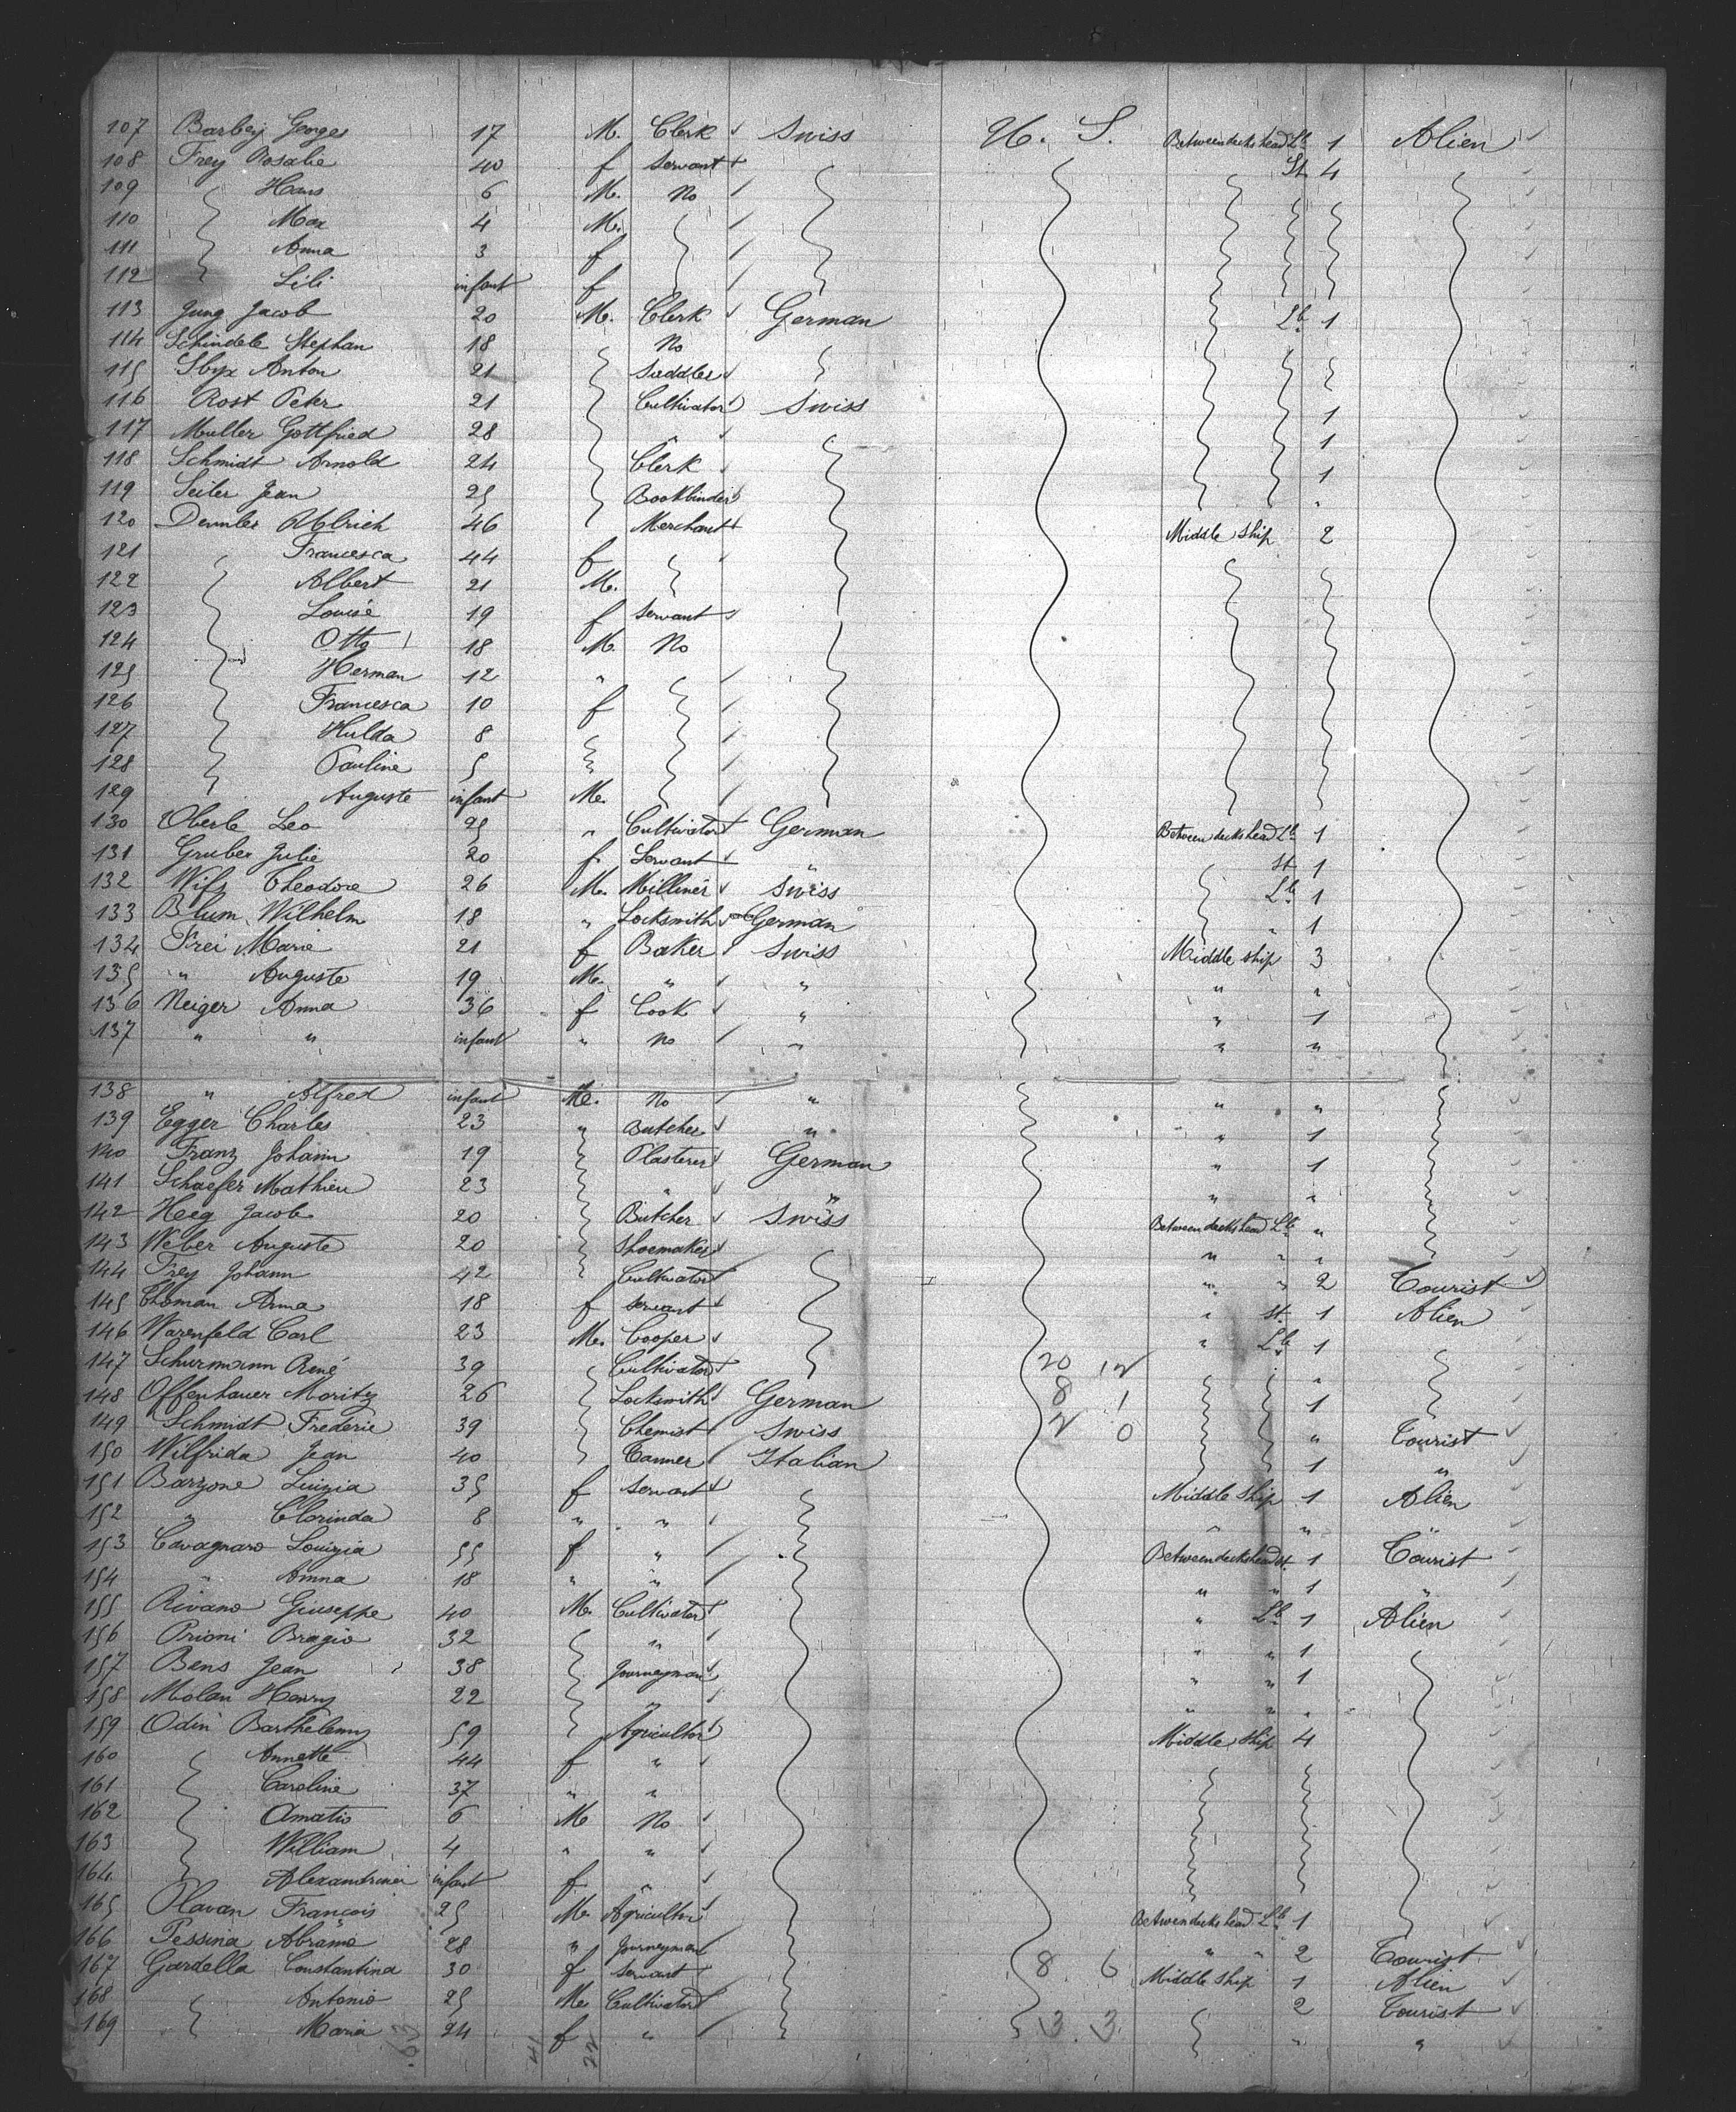 107 Barbey Georges 17 M. Clerk Swiss U. S. Between decks head Lb 1 Alien
108 Frey Rosalie 40 f Servant St. 4
109 Hans 6 M. No
110 Max 4 M.
111 Anna 3 f
112 Lili infant f
113 Jung Jacob 20 M. Clerk German Lb. 1
114 Schindele Stephan 18 No
115 Anton 21 Saddler
116 Rost Peter 21 Cultivator Swiss 1
117 Muller Gottfried 28 " 1
118 Schmidt Arnold 24 Clerk 1
119 Seiler Jean 25 Bookbinder "
120 Demuler Ulrich 46 Merchant Middle ship 2
121 Francesca 44 f
122 Albert 21 M.
123 Louise 19 f Servant
124 Otto 18 M. No
125 Herman 12 "
126 Francesca 10 f
127 Hulda 8
128 Pauline 5
129 Auguste infant M.
130 Oberle Leo 25 " Cultivator German Between decks head Lb. 1
131 Gruber Julie 20 f. Servant " St. 1
132 Theodore 26 M. Milliner Swiss Lb. 1
133 Blum Wilhelm 18 " Locksmith German " 1
134 Frei Marie 21 f Baker Swiss Middle ship 3
135 " Auguste 19 M. " " " "
136 Neiger Anna 36 f Cook " " 1
137 " " infant " No " " "
138 " Alfred infant M. No " " "
139 Egger Charles 23 " Butcher " " 1
140 Franz Johann 19 Plasterer German " 1
141 Schaefer Mathieu 23 " " " "
142 Heeg Jacob 20 Butcher Swiss Between decks head Lb. "
143 Weber Auguste 20 Shoemaker " " "
144 Frey Johann 42 Cultivator " " 2 Tourist
145 Thoman Anna 18 f servant " St. 1 Alien
146 Warenfeld Carl 23 M. Cooper " Lb. 1
147 Schurmann René 39 Cultivator 20 12 "
148 Offenhauer Moritz 26 Locksmith German 8 1 1
149 Schmidt Frederic 39 Chemist Swiss 2 0 " Tourist
150 Wilfrida Jean 40 Tanner Italian 1 "
151 Barzone Luigia 35 f Servant Middle ship 1 Alien
152 " Clorinda 8 " " " " "
153 Cavagnaro Louigia 55 f " Between decks head st. 1 Tourist
154 " Anna 18 " " " " 1 "
155 Rivano Giuseppe 40 M. Cultivator " Lb. 1 Alien
156 Prioni Bragio 32 " " " 1
157 Bens Jean 38 Journeyman " " 1
158 Molan Henry 22 " " " "
159 Odin Barthelemy 59 Agricultor Middle ship 4
160 Annette 44 f "
161 Caroline 37 " "
162 Amatio 6 M No
163 William 4 " "
164 Alexandrine infant f "
165 Plavan François 25 M. Agricultor Between decks head Lb. 1
166 Pessina Abramo 28 " Journeyman " " 2 Tourist
167 Gardella Constantina 30 f Servant 8 6 Middle ship 1 Alien
168 Antonio 25 M. Cultivator 2 Tourist
169 Maria 24 f " 3. 3. " "
63 41 22